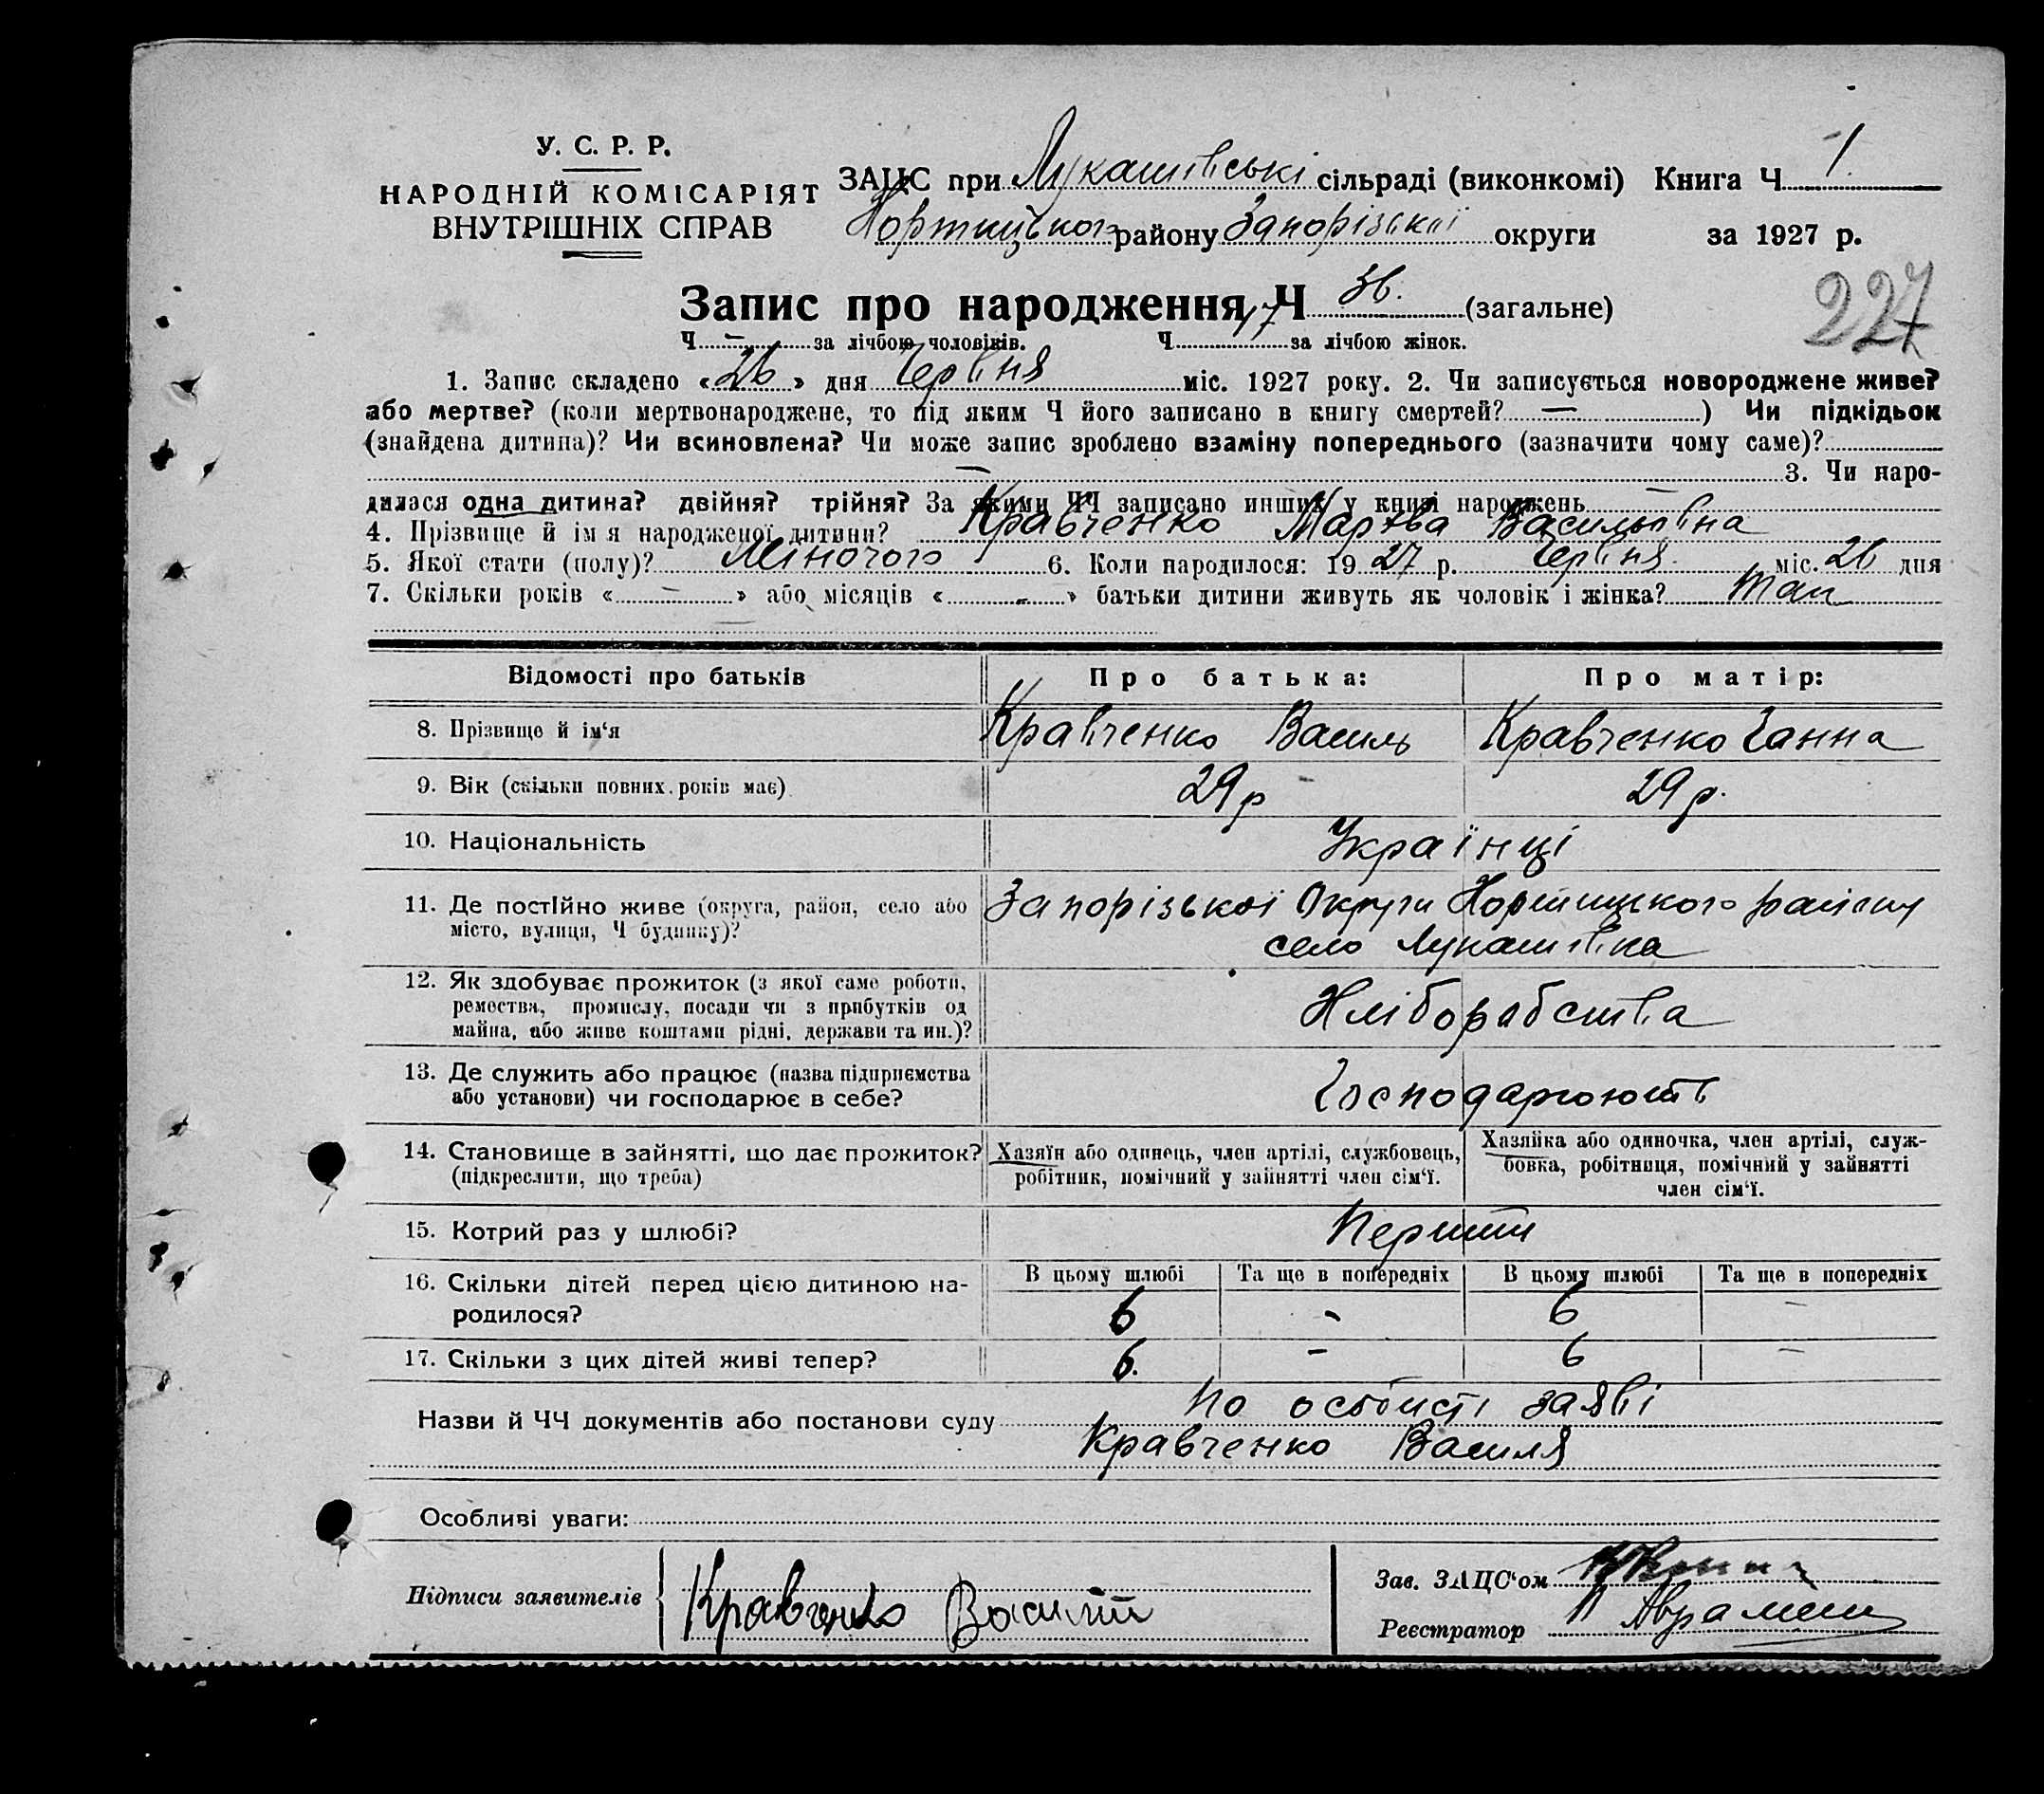 У. С. Р. Р.
НАРОДНІЙ КОМІСАРІЯТ
ВНУТРІШНІХ СПРАВ
ЗАЦС при Лукашівські сільраді (виконкомі) Книга Ч 1.
Хортицького району Запорізької округи за 1927 р.
227
Запис про народження Ч 36. (загальне)
Ч. — за лічбою чоловіків. Ч. 17 за лічбою жінок.
1. Запис складено «26» дня Червня міс. 1927 року. 2. Чи записується новороджене живе?
або мертве? (коли мертвонароджене, то під яким Ч його записано в книгу смертей? — ) Чи підкідьок
(знайдена дитина)? Чи всиновлена? Чи може запис зроблено взаміну попереднього (зазначити чому саме)?
— 3. Чи наро-
дилася одна дитина? двійня? трійня? За якими ЧЧ записано инших у книзі народжень —
4. Прізвище й ім'я народженої дитини? Кравченко Васильівна
5. Якої стати (полу)? Жіночого 6. Коли народилося: 1927 р. Червня міс. 26 дня
7. Скільки років « — » або місяців « - » батьки дитини живуть як чоловік і жінка? Так
Відомості про батьків Про батька: Про матір:
8. Прізвище й ім'я Кравченко Василь Кравченко Ганна
9. Вік (скільки повних років має) 29 р 29 р.
10. Національність Українці
11. Де постійно живе (округа, район, село або Запорізької Округи Хортицького району
місто, вулиця, Ч будинку)? село Лукашівка
12. Як здобуває прожиток (з якої саме роботи,
ремества, промислу, посади чи з прибутків од Хліборабства
майна, або живе коштами рідні, держави та ин.)?
13. Де служить або працює (назва підприємства
або установи) чи господарює в себе? Господарюють
14. Становище в зайнятті, що дає прожиток? Хазяїн або одинець, член артілі, службовець, Хазяйка або одиночка, член артілі, служ-
(підкреслити, що треба) робітник, помічний у зайнятті член сім'ї. бовка, робітниця, помічний у зайнятті
член сім'ї.
15. Котрий раз у шлюбі? Перший
16. Скільки дітей перед цією дитиною на- В цьому шлюбі Та ще в попередніх В цьому шлюбі Та ще в попередніх
родилося? 6 - 6 -
17. Скільки з цих дітей живі тепер? 6. - 6 -
Назви й ЧЧ документів або постанови суду По особисті заяві
Кравченко Василя
Особливі уваги:
Підписи заявителів Кравченко Василій
Зав. ЗАЦС'ом
Реєстратор